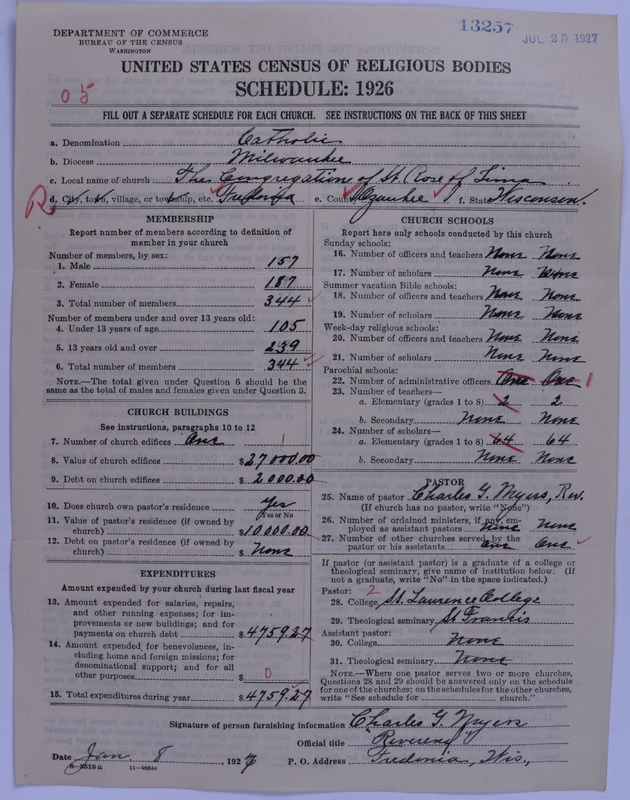 DEPARTMENT OF COMMERCE
BUREAU OF THE CENSUS
WASHINGTON
13257
JUL 25 1927
UNITED STATES CENSUS OF RELIGIOUS BODIES
SCHEDULE: 1926
05
FILL OUT A SEPARATE SCHEDULE FOR EACH CHURCH. SEE INSTRUCTIONS ON THE BACK OF THIS SHEET
a. Denomination Catholic
b. Diocese Milwaukee
c. Local name of church The Congregation of St. Rose of Lima
R
d. City, town, village, or township, etc. Fredonia e. County Ozaukee f. State Wisconsin.
MEMBERSHIP
Report number of members according to definition of
member in your church
Number of members, by sex:
1. Male 157
2. Female 187
3. Total number of members 344
Number of members under and over 13 years old:
4. Under 13 years of age 105
5. 13 years old and over 239
6. Total number of members 344
NOTE.—The total given under Question 6 should be the
same as the total of males and females given under Question 3.
CHURCH BUILDINGS
See instructions, paragraphs 10 to 12
7. Number of church edifices One 1
8. Value of church edifices $27000.00
9. Debt on church edifices $2000.00
10. Does church own pastor's residence? Yes
Yes or No
11. Value of pastor's residence (if owned by
church) $10,000.00
12. Debt on pastor's residence (if owned by
church) $ None
EXPENDITURES
Amount expended by your church during last fiscal year
13. Amount expended for salaries, repairs,
and other running expenses; for im-
provements or new buildings; and for
payments on church debt $4759.27
14. Amount expended for benevolences, in-
cluding home and foreign missions; for
denominational support; and for all
other purposes $ 0
15. Total expenditures during year $4759.27
CHURCH SCHOOLS
Report here only schools conducted by this church
Sunday schools:
16. Number of officers and teachers None None
17. Number of scholars None None
Summer vacation Bible schools:
18. Number of officers and teachers None None
19. Number of scholars None None
Week-day religious schools:
20. Number of officers and teachers None None
21. Number of scholars None None
Parochial schools:
22. Number of administrative officers One One 1
23. Number of teachers—
a. Elementary (grades 1 to 8) 2 2
b. Secondary None None
24. Number of scholars—
a. Elementary (grades 1 to 8) 64 64
b. Secondary None None
PASTOR
25. Name of pastor Charles G. Myers, Rev.
(If church has no pastor, write "None")
26. Number of ordained ministers, if any, em-
ployed as assistant pastors None None
27. Number of other churches served by the
pastor or his assistants One One
If pastor (or assistant pastor) is a graduate of a college or
theological seminary, give name of institution below. (If
not a graduate, write "No" in the space indicated.)
Pastor: 2
28. College St. Laurence College
29. Theological seminary St Francis
Assistant pastor:
30. College None
31. Theological seminary None
NOTE.—Where one pastor serves two or more churches,
Questions 28 and 29 should be answered only on the schedule
for one of the churches; on the schedules for the other churches,
write "See schedule for church."
Signature of person furnishing information Charles G. Myers
Official title "Reverend"
Date Jan. 8 1927 P. O. Address Fredonia, Wis.,
8—5518a 11—9664a